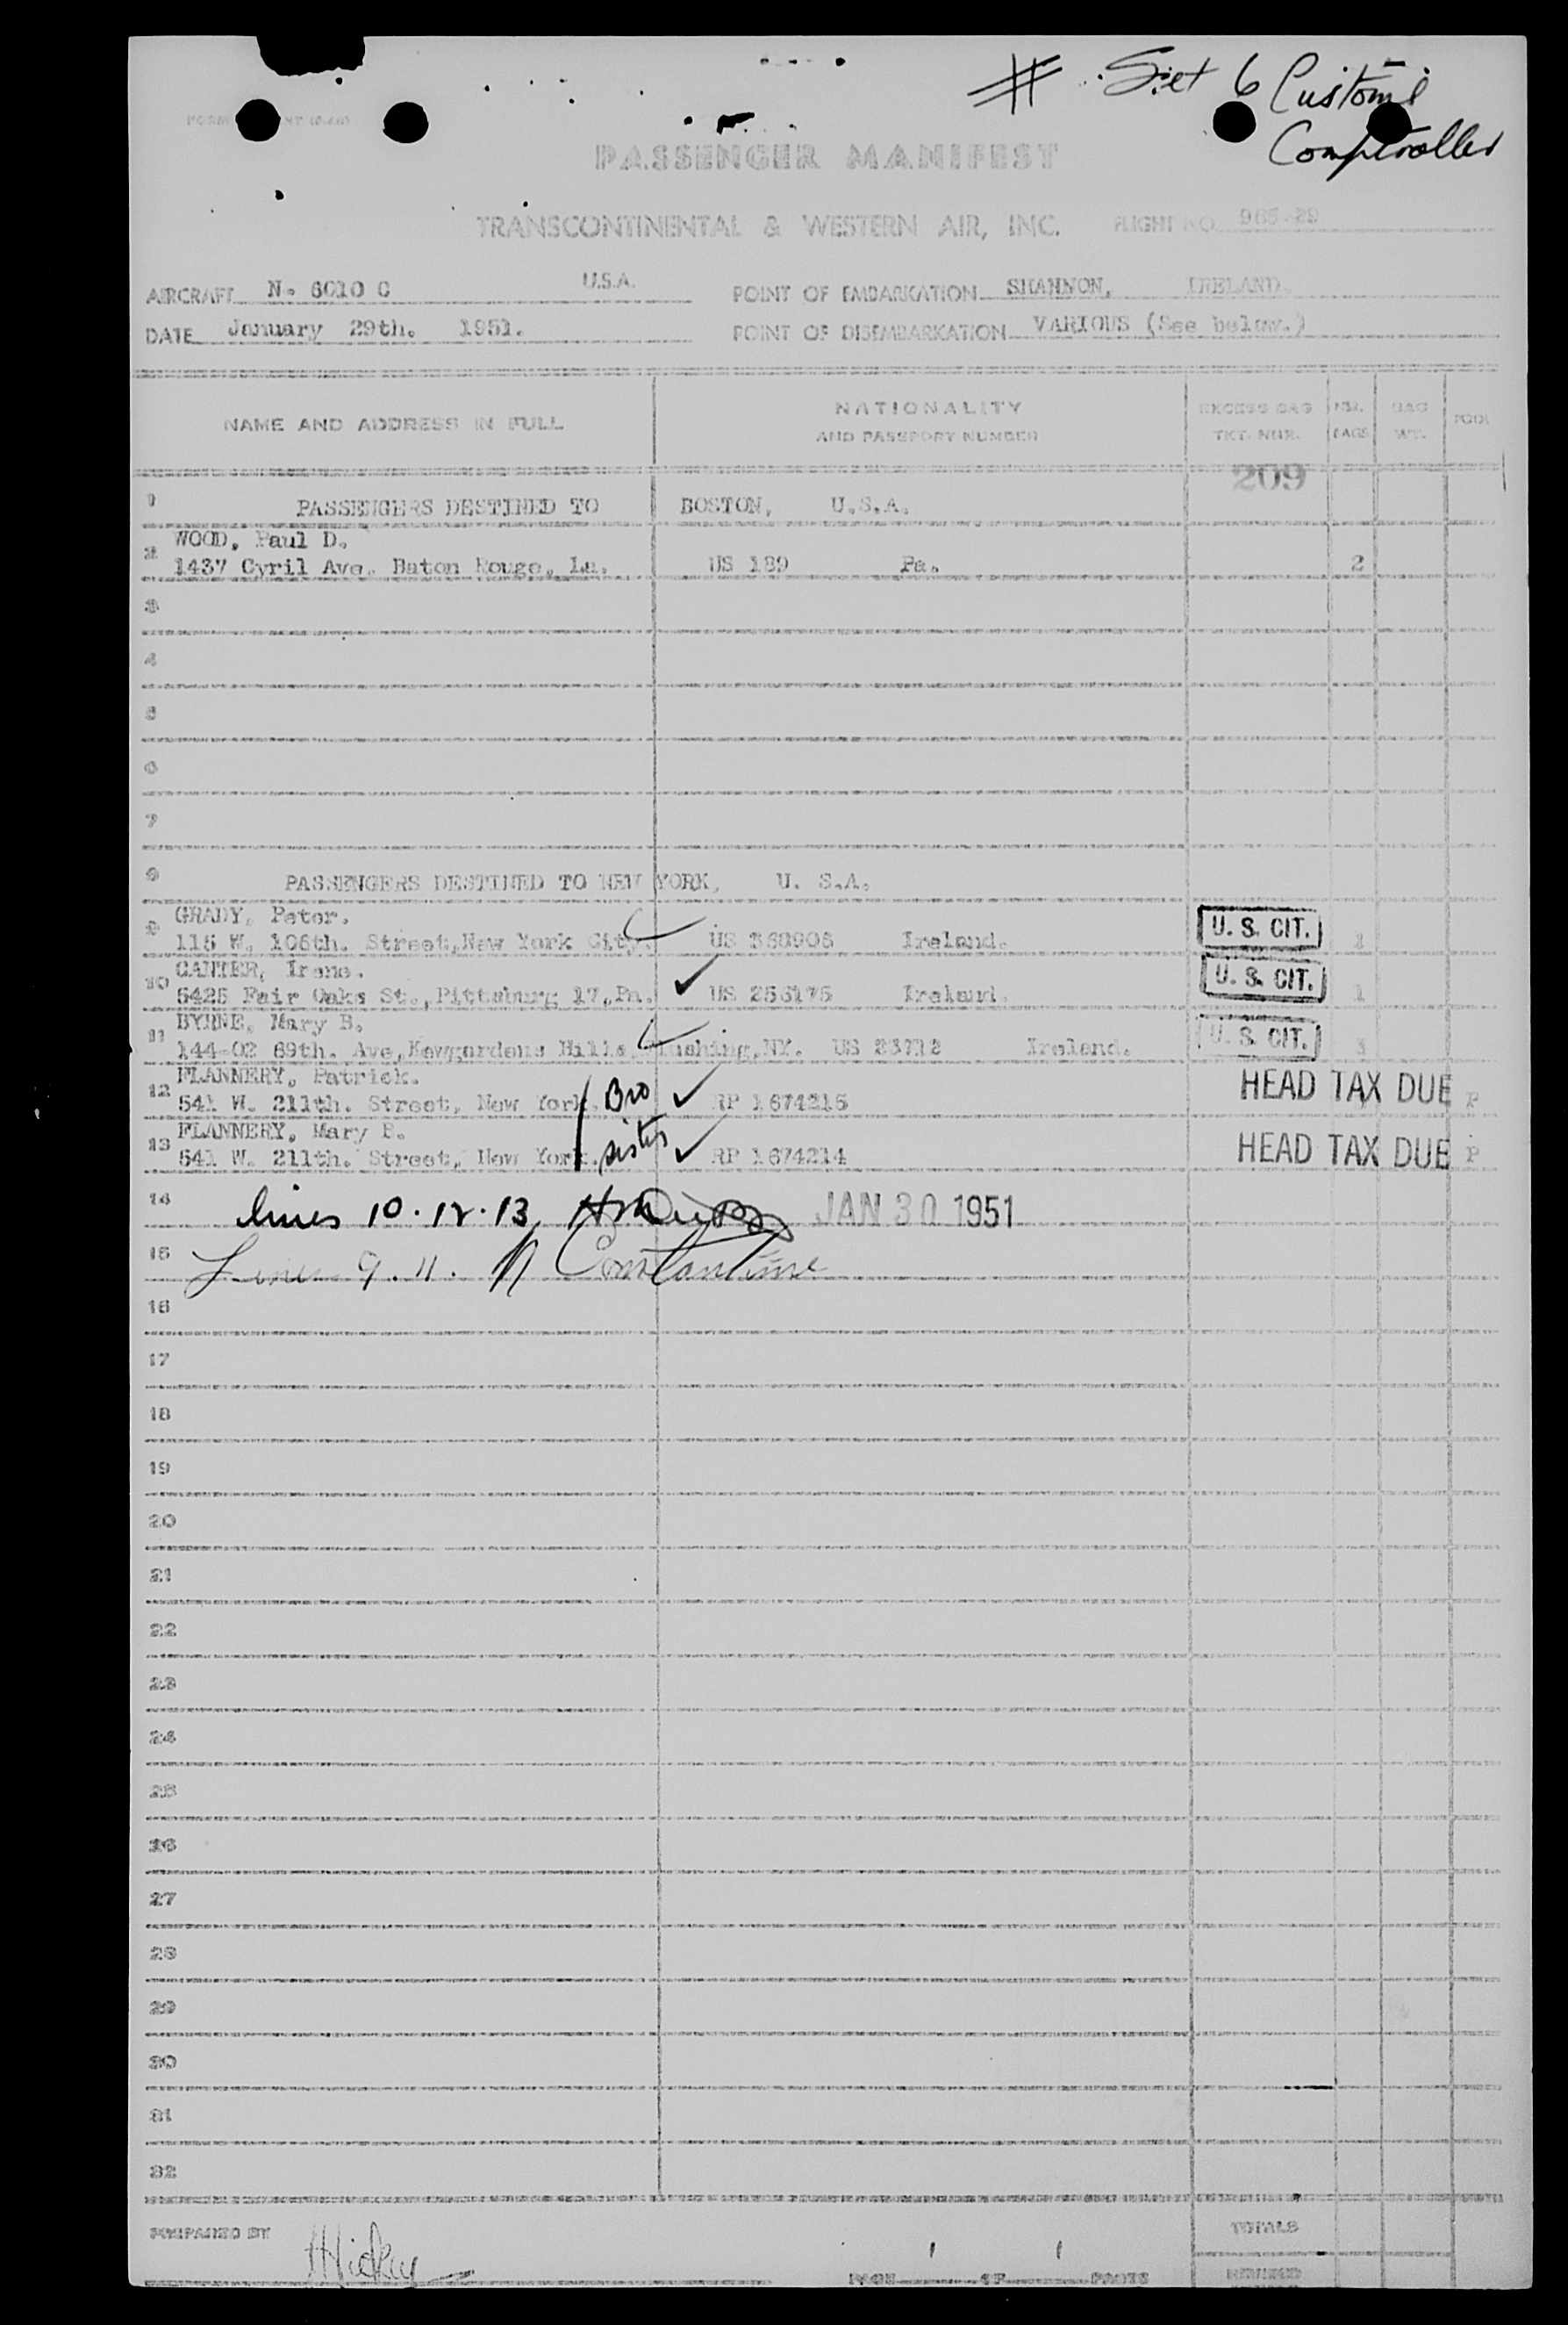 # Set 6 Customs
Comptroller
FORM
PASSENGER MANIFEST
TRANSCONTINENTAL & WESTERN AIR, INC. FLIGHT NO. 965-29
AIRCRAFT N. 6010 C U.S.A. POINT OF EMBARKATION SHANNON, IRELAND.
DATE January 29th. 1951. POINT OF DISEMBARKATION VARIOUS (See below.)
NAME AND ADDRESS IN FULL NATIONALITY AND PASSPORT NUMBER EXCESS BAG TKT. NBR. NBR. BAGS BAG WT. POOL
209
1 PASSENGERS DESTINED TO BOSTON, U.S.A.
WOOD, Paul D.
2 1437 Cyril Ave. Baton Rouge, La. US 189 Pa. 2
3
4
5
6
7
8 PASSENGERS DESTINED TO NEW YORK, U. S.A.
GRADY, Peter.
9 115 W. 106th. Street, New York City. US 368906 Ireland. U. S. CIT.
CANTER, Irene.
10 5425 Fair Oaks St., Pittsburg 17, Pa. US 256175 Ireland. U. S. CIT. 1
BYRNE, Mary B.
11 144-02 69th. Ave, Kewgardens Hills, Flushing, NY. US 23712 Ireland. U. S. CIT. 3
FLANNERY, Patrick.
12 541 W. 211th. Street, New York. Bro RP 1674215 HEAD TAX DUE P
FLANNERY, Mary B.
13 541 W. 211th. Street, New York. sister RP 1674214 HEAD TAX DUE P
14 lines 10.12.13, JAN 30 1951
15 Lines 9.11. N Constantine
16
17
18
19
20
21
22
23
24
25
26
27
28
29
30
31
32
PREPARED BY HHickey PAGE 1 OF 1 PAGES TOTALS